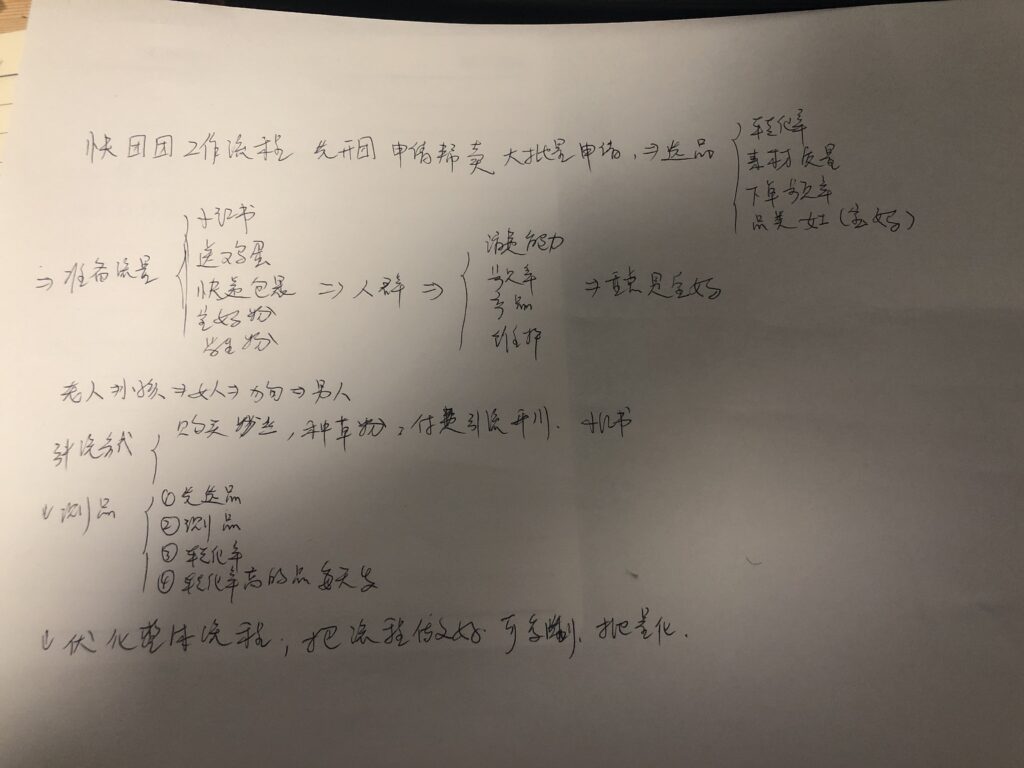 快团团工作流程 先开团 申请帮卖 大批量申请，⇒选品
转化率
素材质量
下单频率
品类 女士（宝妈）
⇒准备流量
小红书
送鸡蛋
快递包裹
宝妈粉
学生粉
⇒人群⇒
消费能力
频率
客品
维护
⇒重点是宝妈
老人⇒小孩⇒女人⇒狗⇒男人
引流方式
购买粉丝，种草粉，付费引流开川. 小红书
↓测品
①先选品
②测品
③转化率
④转化率高的品每天发
↓优化整体流程，把流程做好 可复制. 批量化.